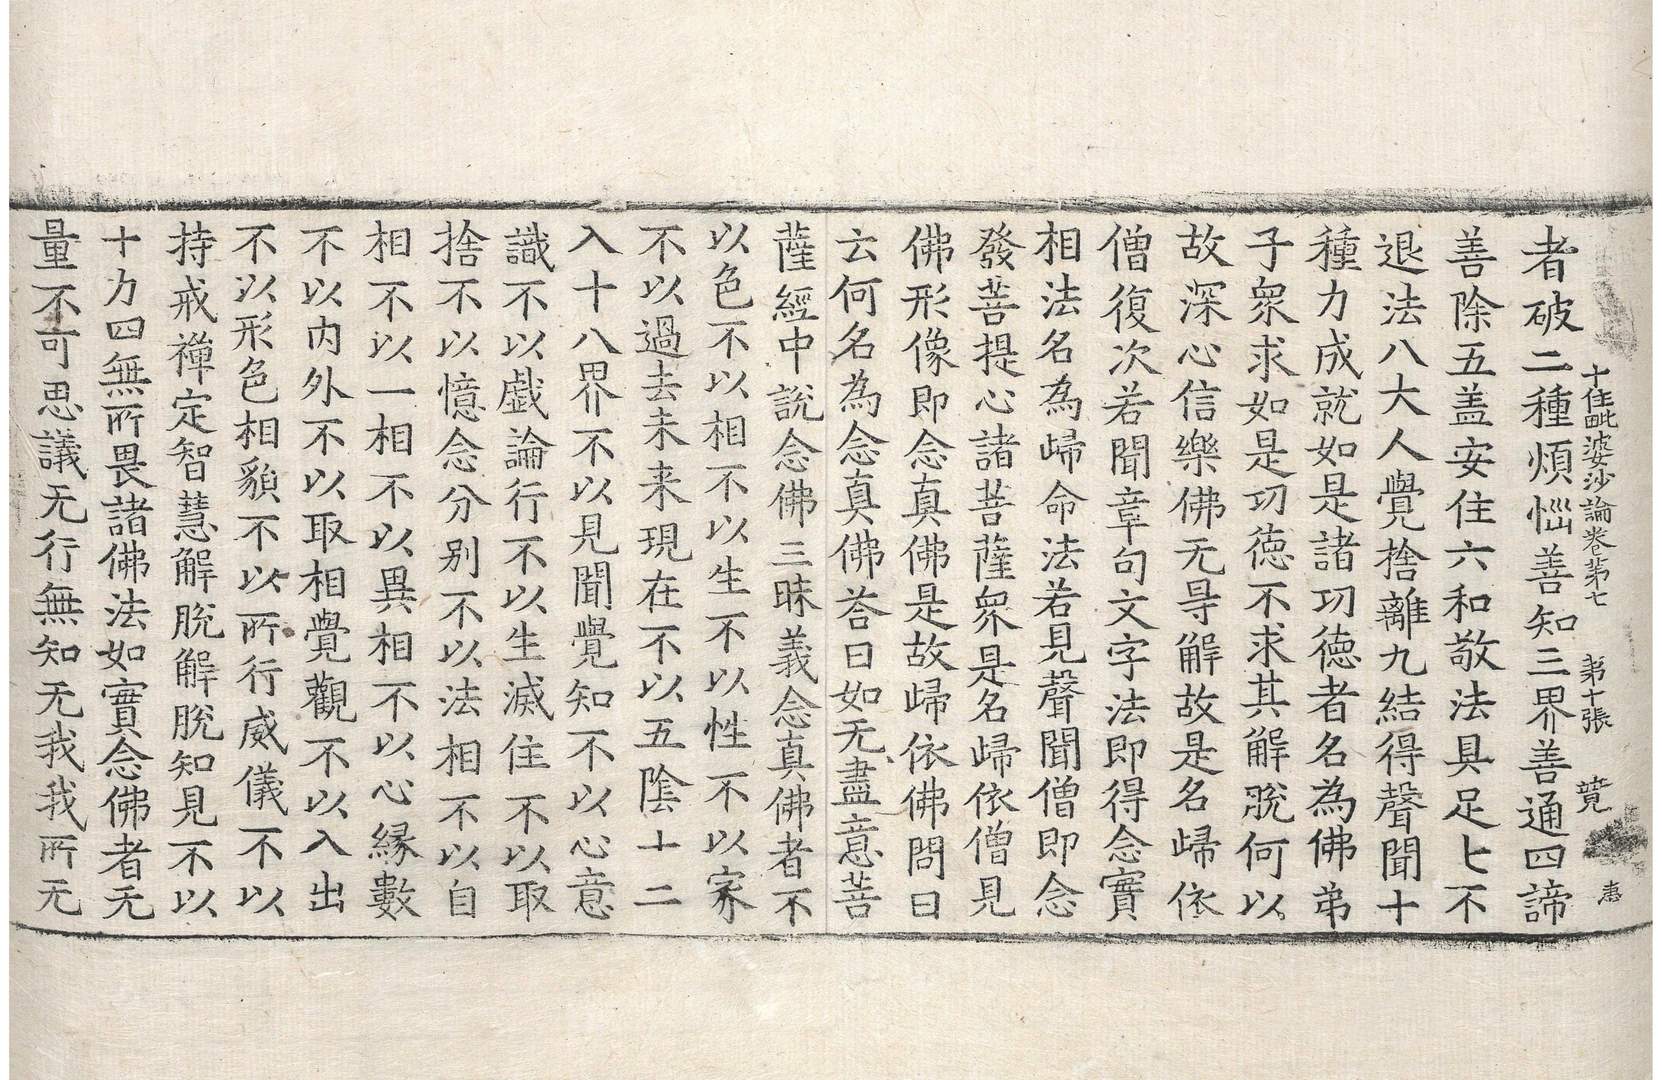 十住毗婆沙論卷第七　第十張　竟　恵
者破二種煩惱善知三界善通四諦
善除五盖安住六和敬法具足七不
退法八大人覺捨離九結得聲聞十
種力成就如是諸功徳者名為佛弟
子衆求如是功徳不求其解脫何以
故深心信樂佛无㝵解故是名歸依
僧復次若聞章句文字法即得念實
相法名為歸命法若見聲聞僧即念
發菩提心諸菩薩衆是名歸依僧見
佛形像即念真佛是故歸依佛問曰
云何名為念真佛荅曰如无盡意菩
薩經中說念佛三昧義念真佛者不
以色不以相不以生不以性不以家
不以過去未来現在不以五陰十二
入十八界不以見聞覺知不以心意
識不以戱論行不以生滅住不以取
捨不以憶念分别不以法相不以自
相不以一相不以異相不以心縁數
不以内外不以取相覺觀不以入出
不以形色相貌不以所行威儀不以
持戒禪定智慧解脫解脫知見不以
十力四無所畏諸佛法如實念佛者无
量不可思議无行無知无我我所无